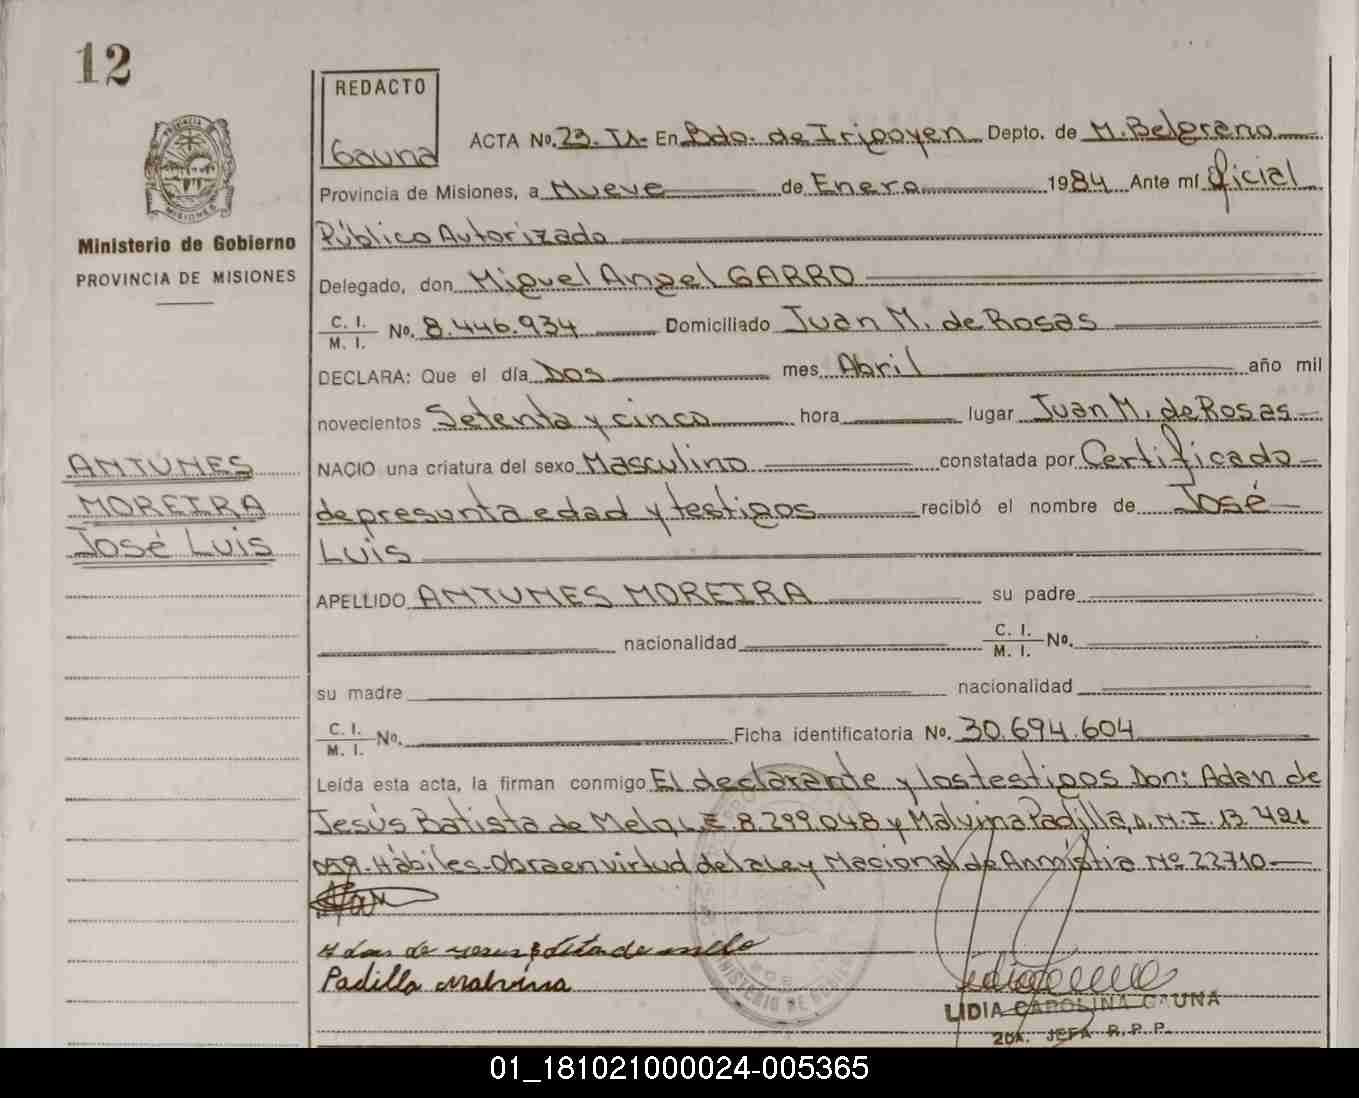 12
REDACTO
Gauna
ACTA No. 23. TA. En Bdo. de Irigoyen Depto. de M. Belgrano
Provincia de Misiones, a Nueve de Enero 1984 Ante mí Oficial
Público Autorizado
Delegado, don Miguel Angel GARRO
C. I. M. I. No. 8.446.934 Domiciliado Juan M. de Rosas
DECLARA: Que el día Dos mes Abril año mil
novecientos Setenta y cinco hora lugar Juan M. de Rosas
NACIO una criatura del sexo Masculino constatada por Certificado
de presunta edad y testigos recibió el nombre de José
Luis
APELLIDO ANTUNES MOREIRA su padre
nacionalidad C. I. M. I. No.
su madre nacionalidad
C. I. M. I. No. Ficha identificatoria No. 30.694.604
Leída esta acta, la firman conmigo El declarante y los testigos Don: Adan de
Jesús Batista de Melo L.E. 8.299.048 y Malvina Padilla, D.N.I. 13.481
059. Hábiles. Obra en virtud de la Ley Nacional de Anmistia Nº 22710
Padilla Malvina
LIDIA CAROLINA GAUNA
2DA. JEFA R.P.P.
PROVINCIA
MISIONES
Ministerio de Gobierno
PROVINCIA DE MISIONES
ANTUNES
MOREIRA
José Luis
MINISTERIO DE GOBIERNO
01_181021000024-005365